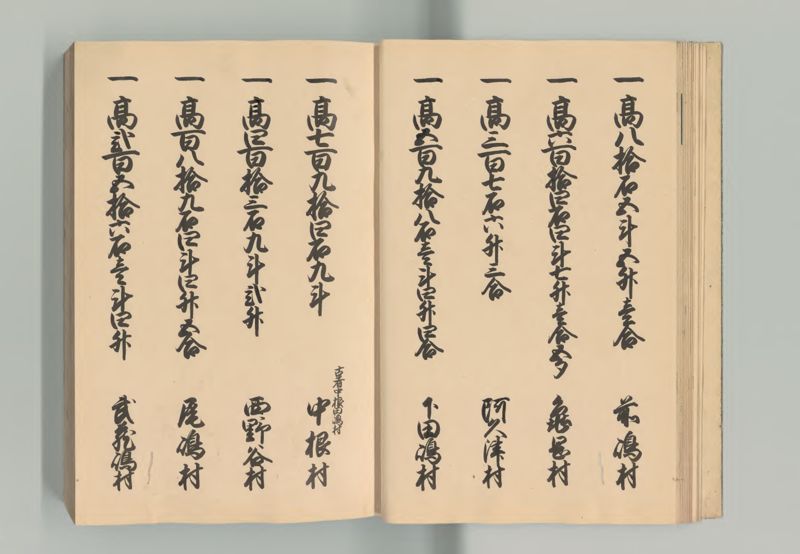 一 高八拾石五斗五升壱合 前嶋村
一 高六百拾四石四斗七升壱合五夕 亀岡村
一 高三百七石六升三合 阿久津村
一 高五百九拾八石壱斗四升四合 下田嶋村
一 高七百九拾四石九斗 古者中根田嶋村 中根村
一 高四百拾三石九斗弐升 西野谷村
一 高百八拾九石四斗四升五合 尾嶋村
一 高弐百五拾六石壱斗四升 武蔵嶋村